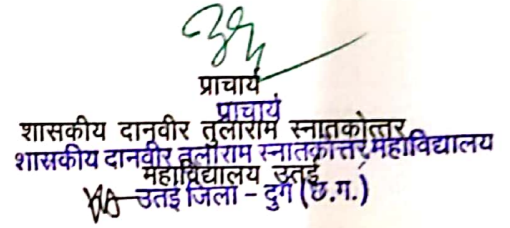 प्राचार्य
प्राचार्य
शासकीय दानवीर तुलाराम स्नातकोत्तर
शासकीय दानवीर तुलाराम स्नातकोत्तर महाविद्यालय
महाविद्यालय उतई
उतई जिला – दुर्ग (छ.ग.)